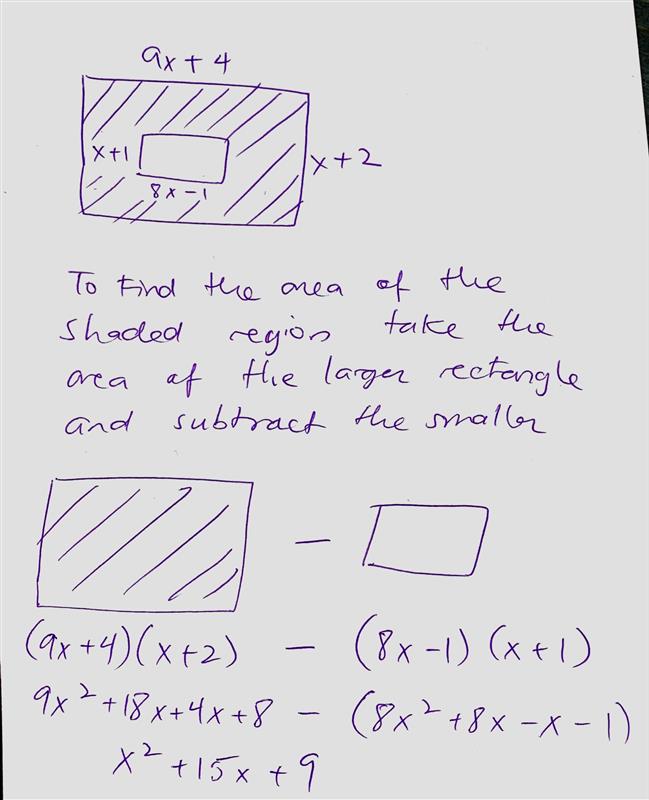 9x + 4
x+1
x+2
8x-1
To Find the area of the
shaded region take the
area of the larger rectangle
and subtract the smaller
-
(9x+4)(x+2) - (8x-1)(x+1)
9x²+18x+4x+8 - (8x²+8x-x-1)
x²+15x+9